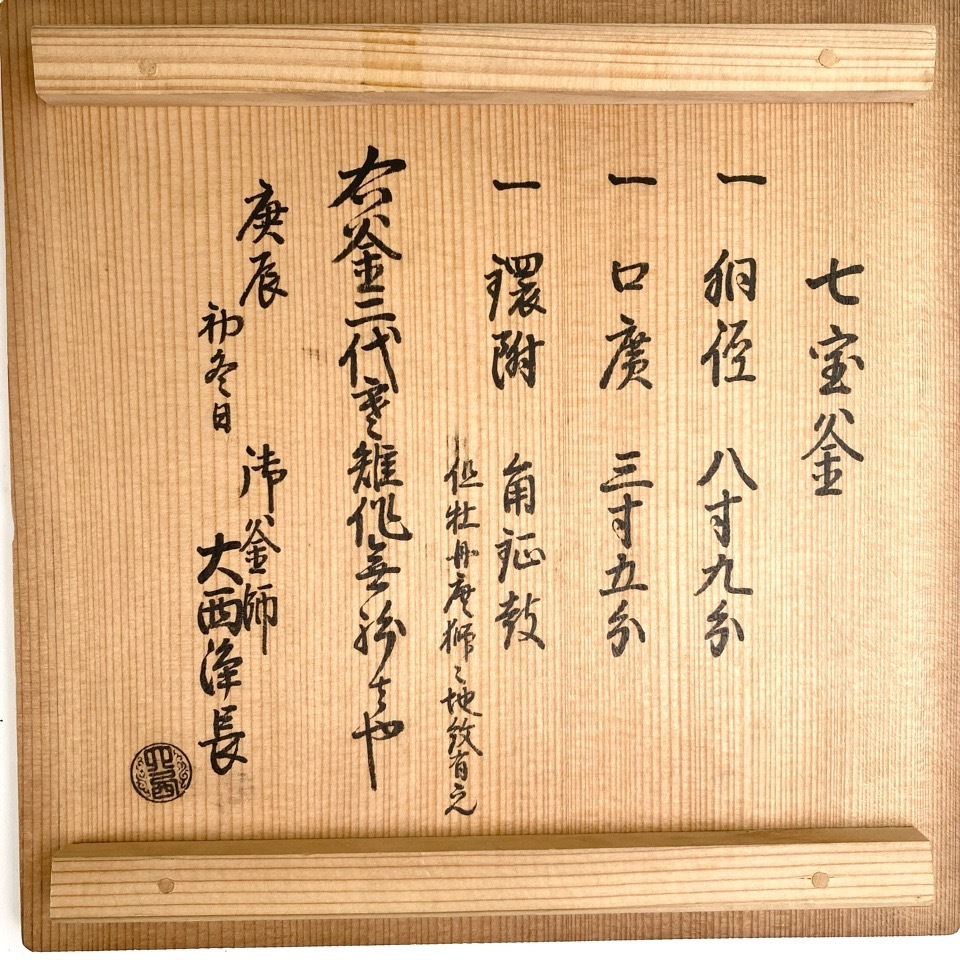 七宝釜
一 胴径 八寸九分
一 口廣 三寸五分
一 環附 角鉦鼓
但牡丹唐獅々地紋有之
右釜二代寒雉作無紛者也
庚辰
初冬日
御釜師
大西浄長
大西